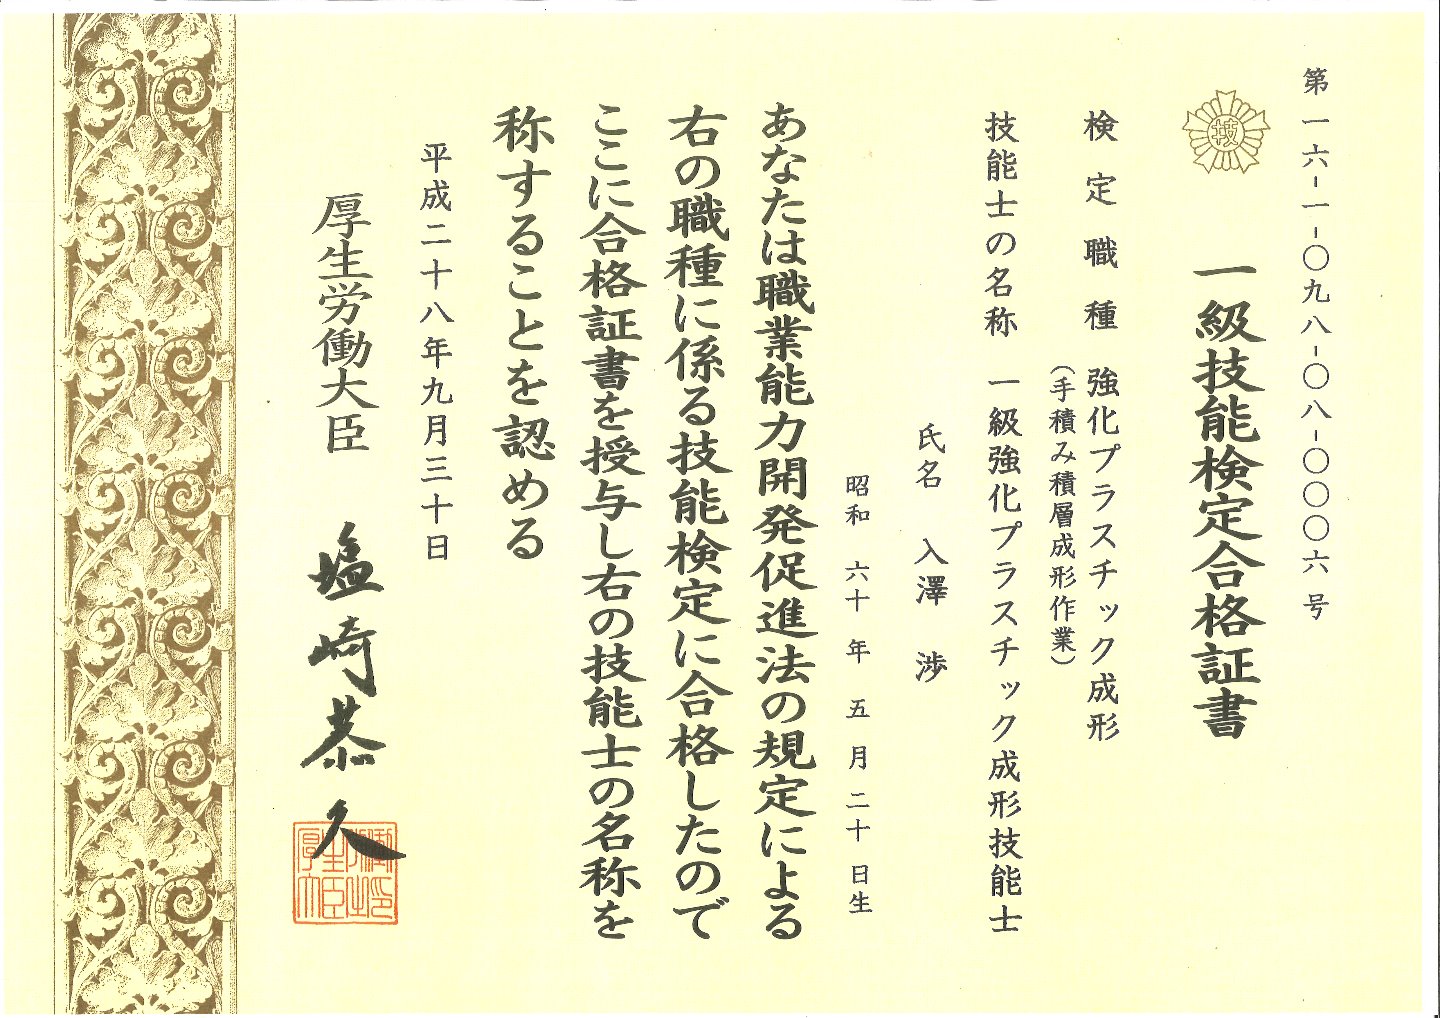 第一六-一-〇九八-〇八-〇〇〇六号
技
一級技能検定合格証書
検定職種 強化プラスチック成形
(手積み積層成形作業)
技能士の名称 一級強化プラスチック成形技能士
氏名 入澤 渉
昭和 六十 年 五 月 二十 日生
あなたは職業能力開発促進法の規定による
右の職種に係る技能検定に合格したので
ここに合格証書を授与し右の技能士の名称を
称することを認める
平成二十八年九月三十日
厚生労働大臣 塩崎恭久